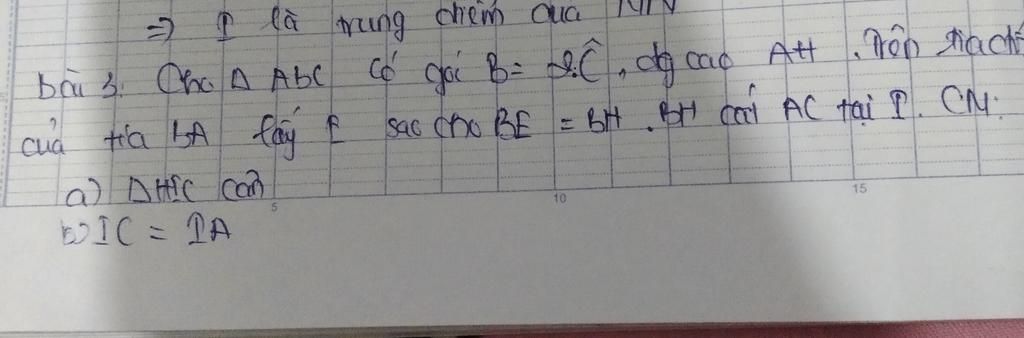 => I là trung điểm của MN
bài 3. Cho Δ ABC có góc B = 2.Ĉ, đg cao AH. Trên tia
của tia BA lấy E sao cho BE = BH. BH cắt AC tại I. CM:
a) ΔHIC cân
b) IC = IA
5 10 15